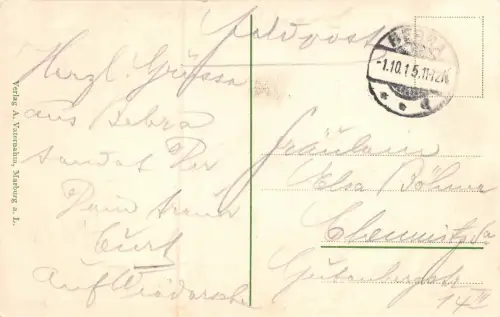 Feldpost
BEBRA
-1.10.15.11-12N.
a
Herzl. Grüsse
aus Bebra
sendet Dir
Dein treuer
Curt
Auf Wiedersehn
Fräulein
Elsa Böhme
Chemnitz Sa
Gutenbergstr
14 IV
Verlag A. Vaternahm, Marburg a. L.